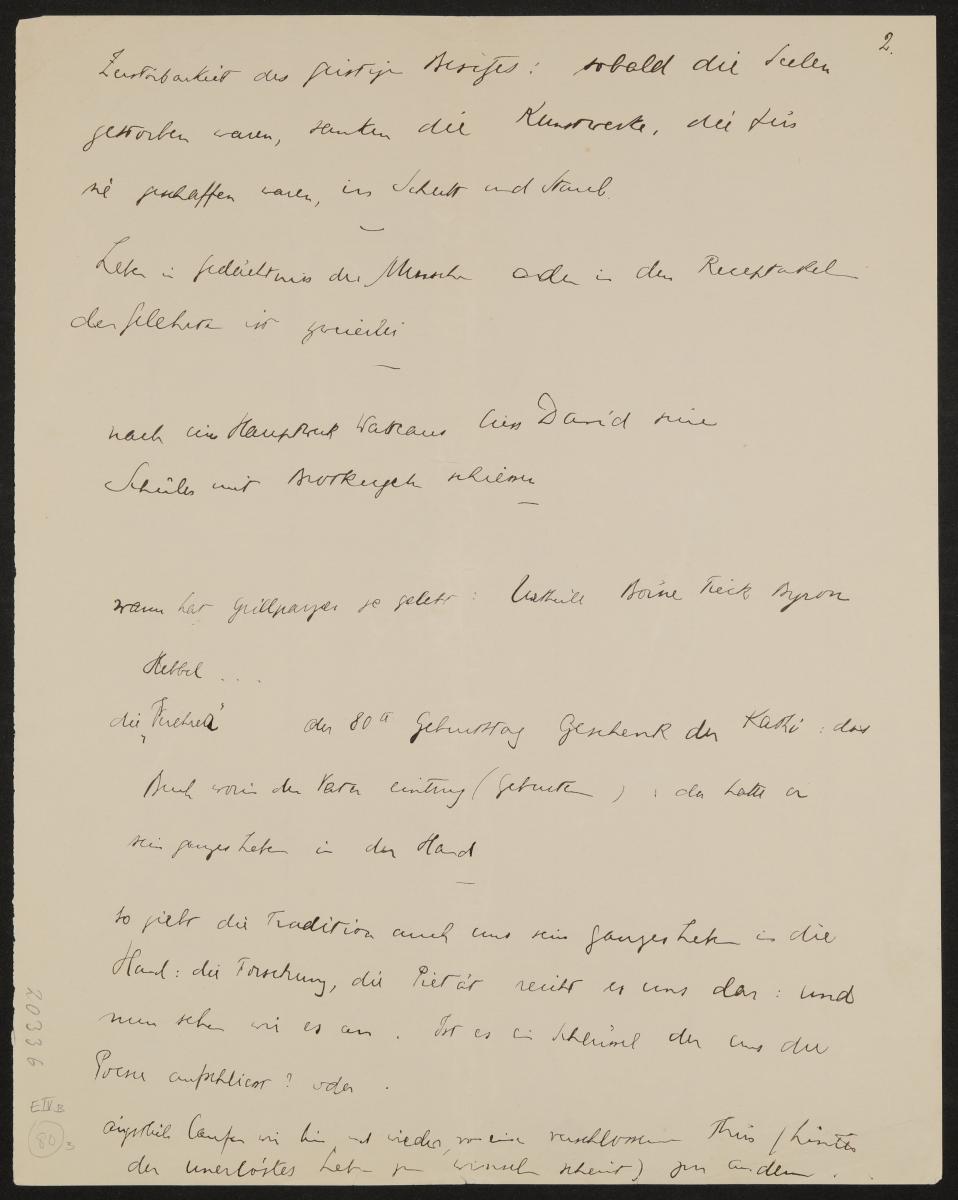 2.
Zerstörbarkeit des geistigen Besitzes: sobald die Seelen
gestorben waren, sanken die Kunstwerke, die für
sie geschaffen waren, in Schutt und Staub.
Leben im Gedächtnis der Menschen oder in den Receptakeln
der Gelehrten ist zweierlei
nach einem Hauptwerk Watteaus liess David seine
Schüler mit Brotkugeln schiessen
wann hat Grillparzer so gelebt: Urtheile Börne Tieck Byron
Hebbel ...
die „Verehrer" der 80te Geburtstag Geschenk der Kathi: das
Buch worin der Vater eintrug (Geburten): da hatte er
sein ganzes Leben in der Hand
so giebt die Tradition auch uns sein ganzes Leben in die
Hand: die Forschung, die Pietät reicht es uns dar: und
nun sehen wir es an. Ist es ein Schlüssel der uns die
Poesie aufschliesst? oder.
ängstlich laufen wir hin und wieder, von einer verschlossenen Thür (hinter
der unerlöstes Leben zu winseln scheint) zur andern ..
20336
E IV B
80 3